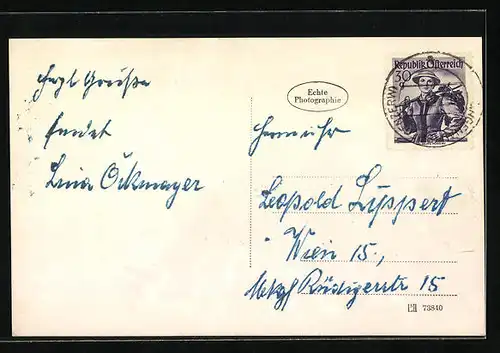 Herzl Grüße
sendet
Lina Öckmayer
Echte
Photographie
Republik Österreich
30
Leopold Luppert
Wien 15.,
Rüdigerstr 15
73840